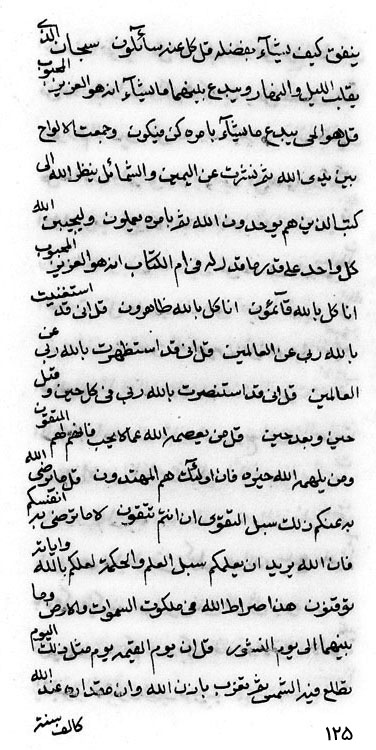 ينفق كيف يشآء بفضله قل كل عنه سائلون سبحان الذي
يقلب الليل والنهار ويبدع بينهما ما يشآء انه هو العزيز المحبوب
قل هو الحي يبدع ما يشآء بامره كن فيكون وجمعت الالواح
بين يدى الله ثم نثرت عن اليمين والشمائل ينظر الله الى
كتب الذين هم يوحدون الله ثم بامره يعملون وليجيبن الله
كل واحد على قدر ما قدر له في ام الكتاب انه هو العزيز المحبوب
انا كل بالله قآئمون انا كل بالله ظاهرون قل اني قد استغنيت
بالله ربي عن العالمين قل اني قد استظهرت بالله ربي عن
العالمين قل اني قد استنصرت بالله ربي في كل حين و قبل
حين وبعد حين قل من يعصمه الله عما لا يحب فانهم لهم المتقون
ومن يلهمه الله خيره فان اولئك هم المهتدون قل ما يرضى الله
به عنكم ذلك سبل التقوى ان انتم تتقون لا ما ترضى به انفسكم
فان الله يريد ان يعلمكم سبل العلم والحكمة لعلكم بالله واياته
توقنون هذا صراط الله في ملكوت السموات والارض وما
بينهما الى يوم النشور قل ان يوم القيمه يوم مثل ذلك اليوم
يطلع فيه الشمس ثم تغرب باذن الله وان مقداره عند الله
كالف سنة
١٢٥